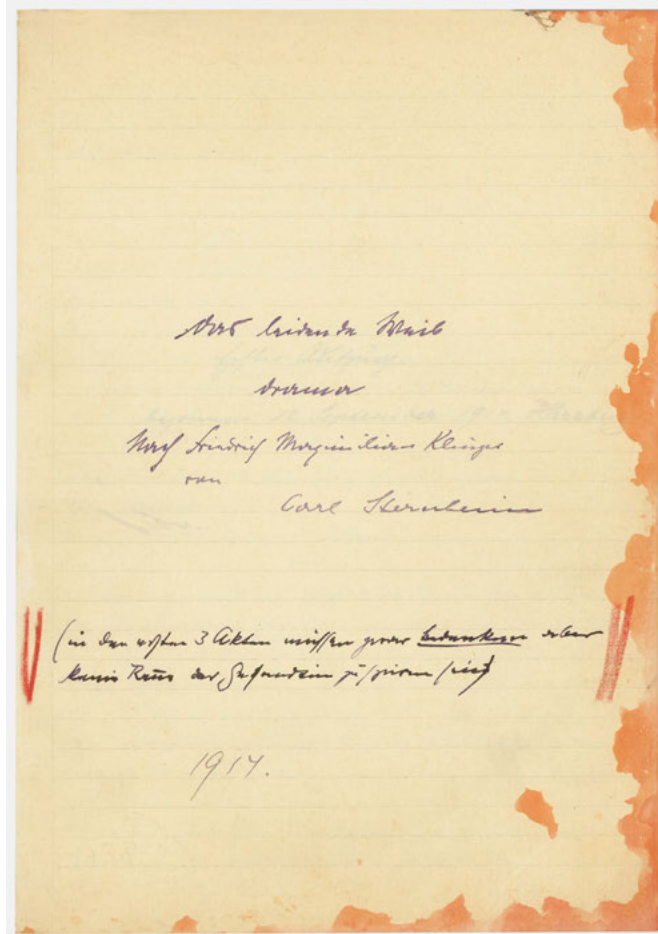 Das leidende Weib
Drama
Nach Friedrich Maximilian Klinger
von
Carl Sternheim
(in den ersten 3 Akten müssen zwar Gedanken aber
keine Reue der Gesandtin zu spüren sein)